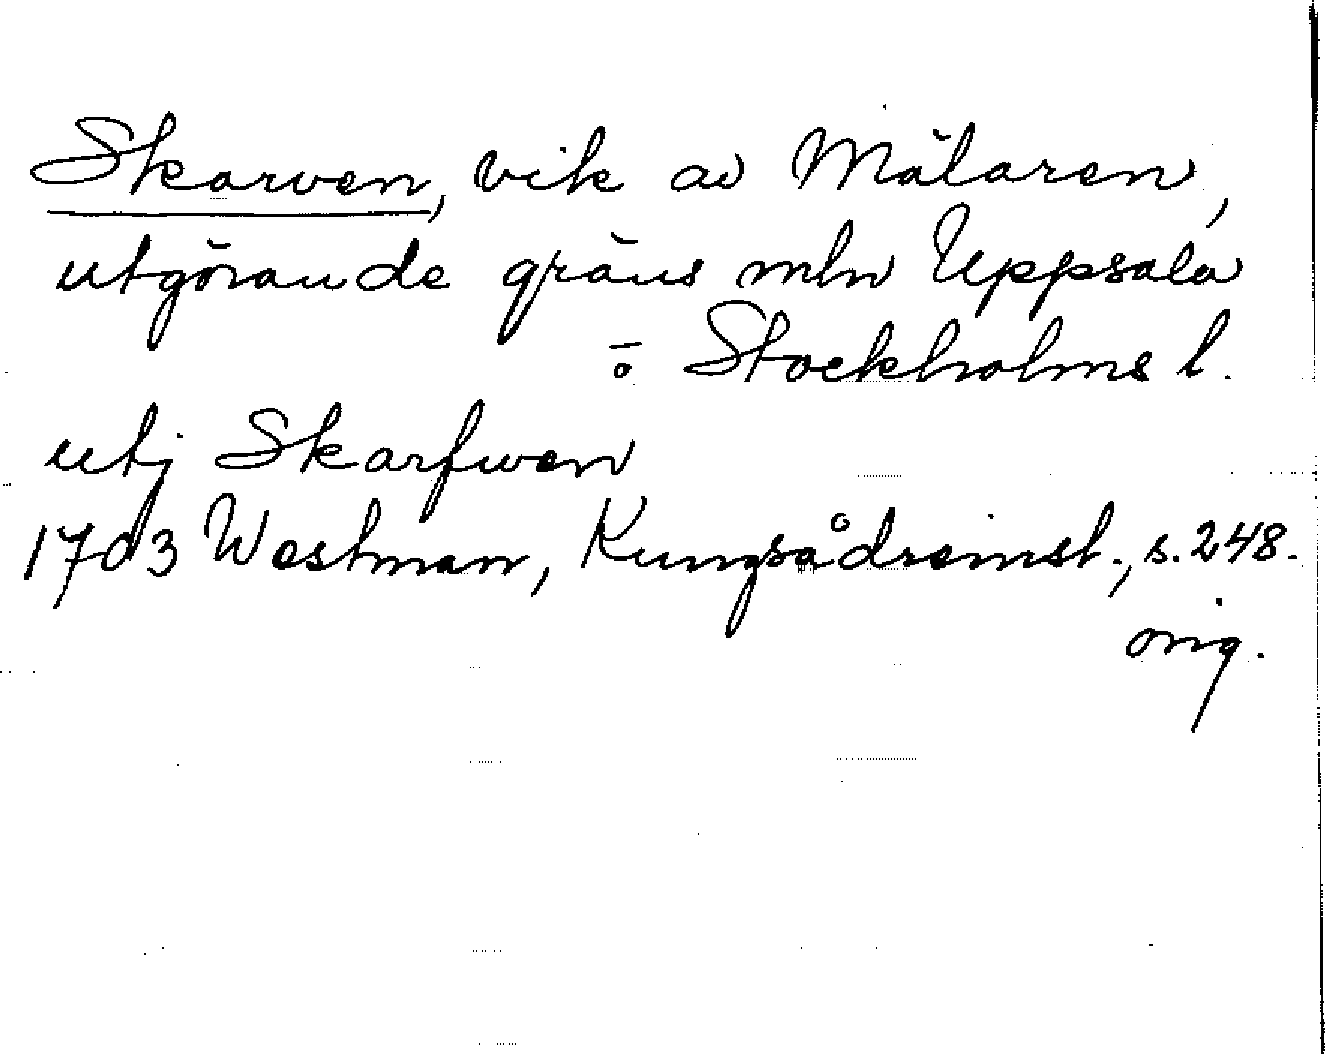 Skarven, vik av Mälaren,
utgörande gräns mln Uppsala
o Stockholms l.
utj Skarfwen
1703 Westman, Kungsådreinst., s. 248.
orig.